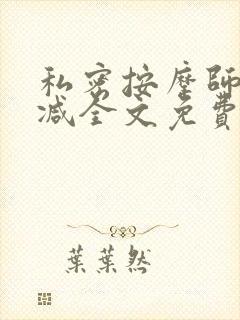 私密按摩師
减全文免費
葉葉然